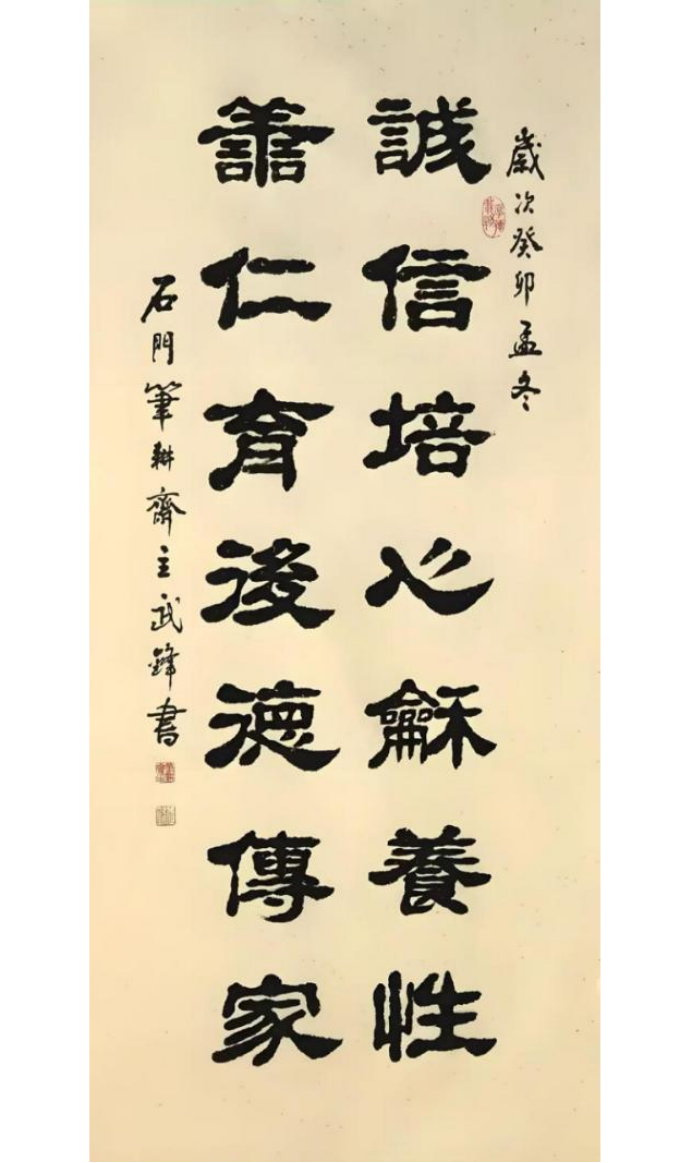 歲次癸卯孟冬
誠信培心龢養性
善仁育後德傳家
石門筆耕齋主武鋒書